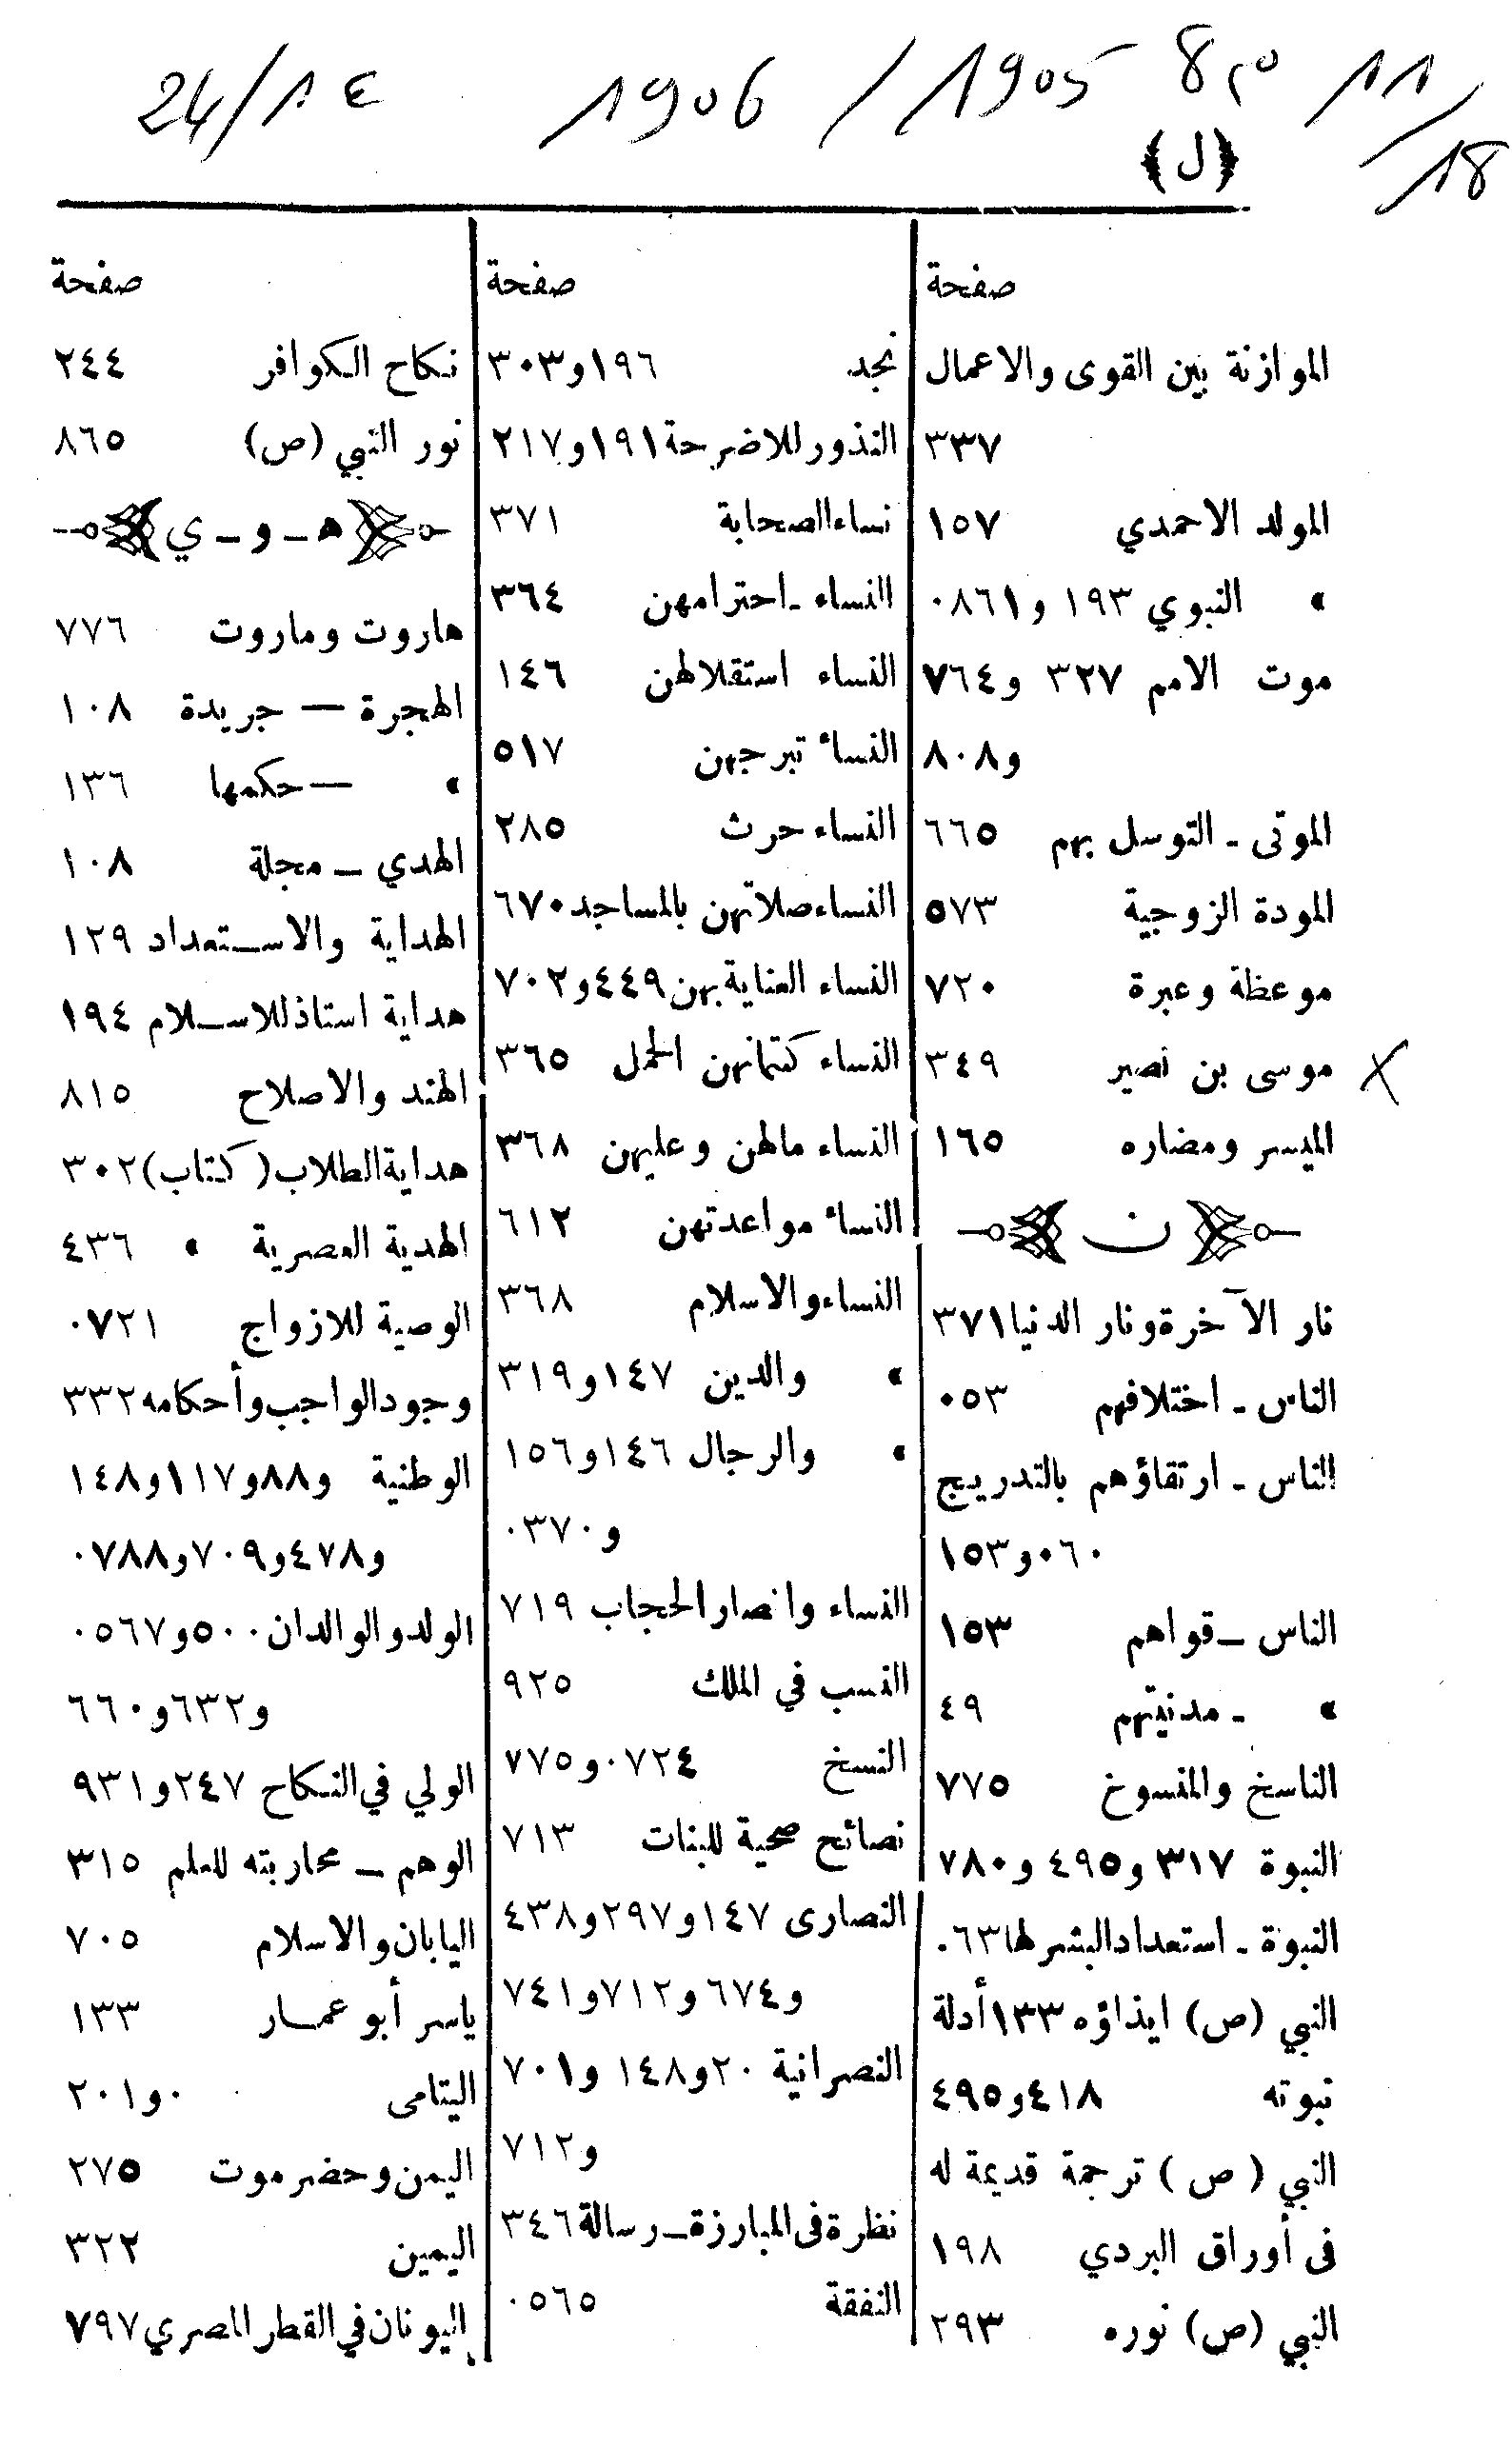 24/١٤ 1906 / 1905 م8 11/18
(ل)
صفحة
الموازنة بين القوى والاعمال
٣٣٧
المولد الاحمدي ١٥٧
» النبوي ١٩٣ و٠٨٦١
موت الامم ٣٢٧ و٧٦٤
و٨٠٨
الموتى ـ التوسل بهم ٦٦٥
المودة الزوجية ٥٧٣
موعظة وعبرة ٧٢٠
موسى بن نصير ٣٤٩
الميسر ومضاره ١٦٥
ن
نار الآخرة ونار الدنيا ٣٧١
الناس ـ اختلافهم ٠٥٣
الناس ـ ارتقاؤهم بالتدريج
٠٦٠ و١٥٣
الناس ــ قواهم ١٥٣
» ـ مدنيتهم ٤٩
الناسخ والمنسوخ ٧٧٥
النبوة ٣١٧ و٤٩٥ و٧٨٠
النبوة ـ استعداد البشر لها ٠٦٣
النبي (ص) ايذاؤه ١٣٣ أدلة
نبوته ٤١٨ و٤٩٥
النبي (ص) ترجمة قديمة له
في أوراق البردي ١٩٨
النبي (ص) نوره ٢٩٣
صفحة
نجد ١٩٦ و٣٠٣
النذور للاضرحة ١٩١ و٢١٧
نساء الصحابة ٣٧١
النساء ـ احترامهن ٣٦٤
النساء استقلالهن ١٤٦
النساء تبرجهن ٥١٧
النساء حرث ٢٨٥
النساء صلاتهن بالمساجد ٦٧٠
النساء العناية بهن ٤٤٩ و٧٠٢
النساء كتمانهن الحمل ٣٦٥
النساء مالهن وعليهن ٣٦٨
النساء مواعدتهن ٦١٢
النساء والاسلام ٣٦٨
» والدين ١٤٧ و٣١٩
» والرجال ١٤٦ و١٥٦
و٠٣٧٠
النساء وانصار الحجاب ٧١٩
النسب في الملك ٩٢٥
النسخ ٠٧٢٤ و٧٧٥
نصائح صحية للبنات ٧١٣
النصارى ١٤٧ و٢٩٧ و٤٣٨
و٦٧٤ و٧١٢ و٧٤١
النصرانية ٢٠ و١٤٨ و٧٠١
و٧١٢
نظرة في المبارزة ـ رسالة ٣٤٦
النفقة ٠٥٦٥
صفحة
نكاح الكوافر ٢٤٤
نور النبي (ص) ٨٦٥
هـ ـ و ـ ي
هاروت وماروت ٧٧٦
الهجرة — جريدة ١٠٨
» — حكمها ١٣٦
الهدي ــ مجلة ١٠٨
الهداية والاستعداد ١٢٩
هداية استاذ للاسلام ١٩٤
الهند والاصلاح ٨١٥
هداية الطلاب (كتاب) ٣٠٢
الهدية العصرية » ٤٣٦
الوصية للازواج ٠٧٢١
وجود الواجب وأحكامه ٣٣٢
الوطنية و٨٨ و١١٧ و١٤٨
و٤٧٨ و٧٠٩ و٠٧٨٨
الولد والوالدان ٥٠٠ و٠٥٦٧
و٦٣٢ و٦٦٠
الولي في النكاح ٢٤٧ و٩٣١
الوهم ــ محاربته للعلم ٣١٥
اليابان والاسلام ٧٠٥
ياسر أبو عمار ١٣٣
اليتامى ٠ و٢٠١
اليمن وحضرموت ٢٧٥
اليمين ٣٢٢
اليونان في القطر المصري ٧٩٧